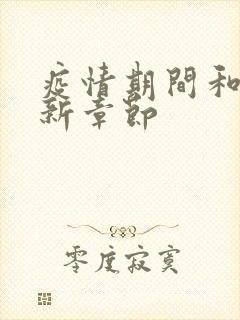 疫情期間和
新章節
零度寂寞